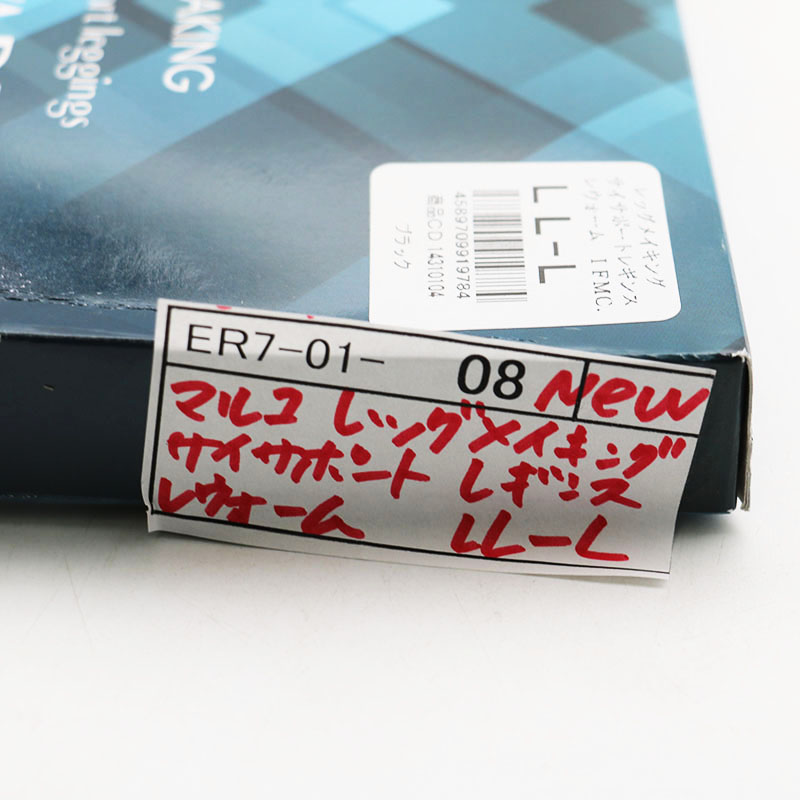 AKING
rt leggings
レッグメイキング
サイサポートレギンス
レヴォーム IFMC.
LL-L
4589709919784
商品CD 14310104
ブラック
ER7-01- 08 New
マルコ レッグメイキング
サイサホント レギンス
レヴォーム LL-L